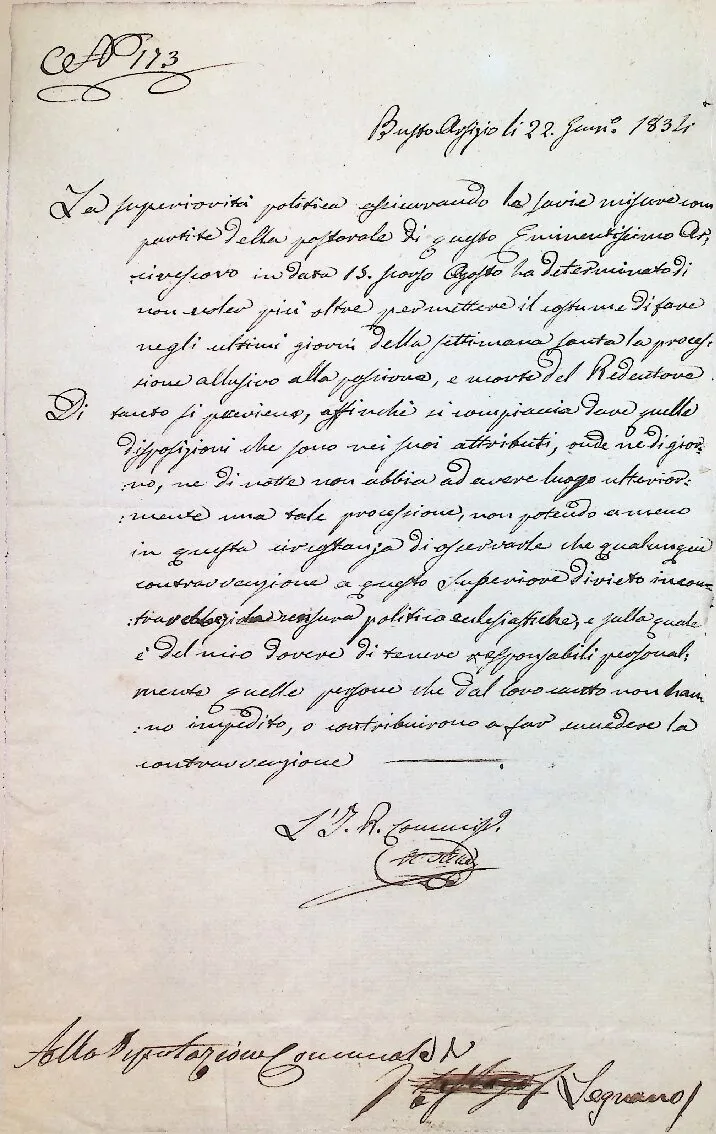 N° 173
Busto Arsizio li 22. Genn.° 1834
La superiorità politica assicurando le savie misure com
partite della pastorale di questo Eminentissimo Ar,
civescovo in data 15. scorso Agosto ha determinato di
non voler più oltre permettere il costume di fare
negli ultimi giorni della settimana santa la proces:
sione allusivo alla passione, e morte del Redentore.
Di tanto si previene, affinchè si compiaccia dare quelle
disposizioni che sono nei suoi attributi, onde nè di gior:
:no, ne di notte non abbia ad avere luogo ulterior:
:mente una tale processione, non potendo a meno
in questa circostanza di osservarle che qualunque
contravvenzione a questo Superiore divieto incon:
:trarebbe la censura politica ecclesiastiche, e sulla quale
è del mio dovere di tenere responsabili personal:
mente quelle persone che dal loro canto non han
:no impedito, o contribuirono a far succedere la
contravvenzione
L'I. R. Commiss.
Alla Deputazione Comunale di
Legnano